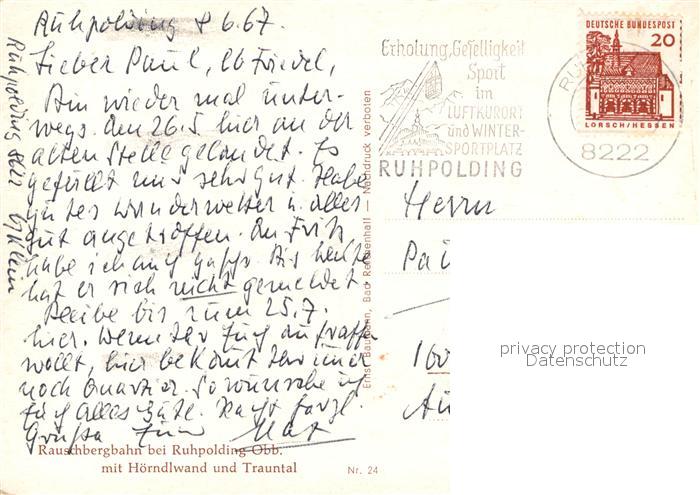 Ruhpolding 8.6.67.
Lieber Paul, lb Friedel,
Bin wieder mal unter-
wegs. den 26.5 hier an der
alten Stelle gelandet. Es
gefällt mir sehr gut. Habe
gutes Wanderwetter u. alles
gut angetroffen. An Fritz
habe ich auch Bis heute
hat er sich nicht gemeldet
Bleibe bis zum 25.7.
hier. Wenn Ihr Euch aufraffen
wollt, hier bekommt Ihr immer
noch Quartier. So wünsche ich
Euch alles Gute. Recht herzl.
Grüße Euer Max
Ruhpolding 8222 b/Klein
Rauschbergbahn bei Ruhpolding Obb.
mit Hörndlwand und Trauntal
Nr. 24
Ernst Baumann, Bad Reichenhall — Nachdruck verboten
Erholung, Geselligkeit
Sport
im
LUFTKURORT
und WINTER-
SPORTPLATZ
RUHPOLDING
8222
DEUTSCHE BUNDESPOST
20
LORSCH/HESSEN
Herrn
privacy protection
Datenschutz